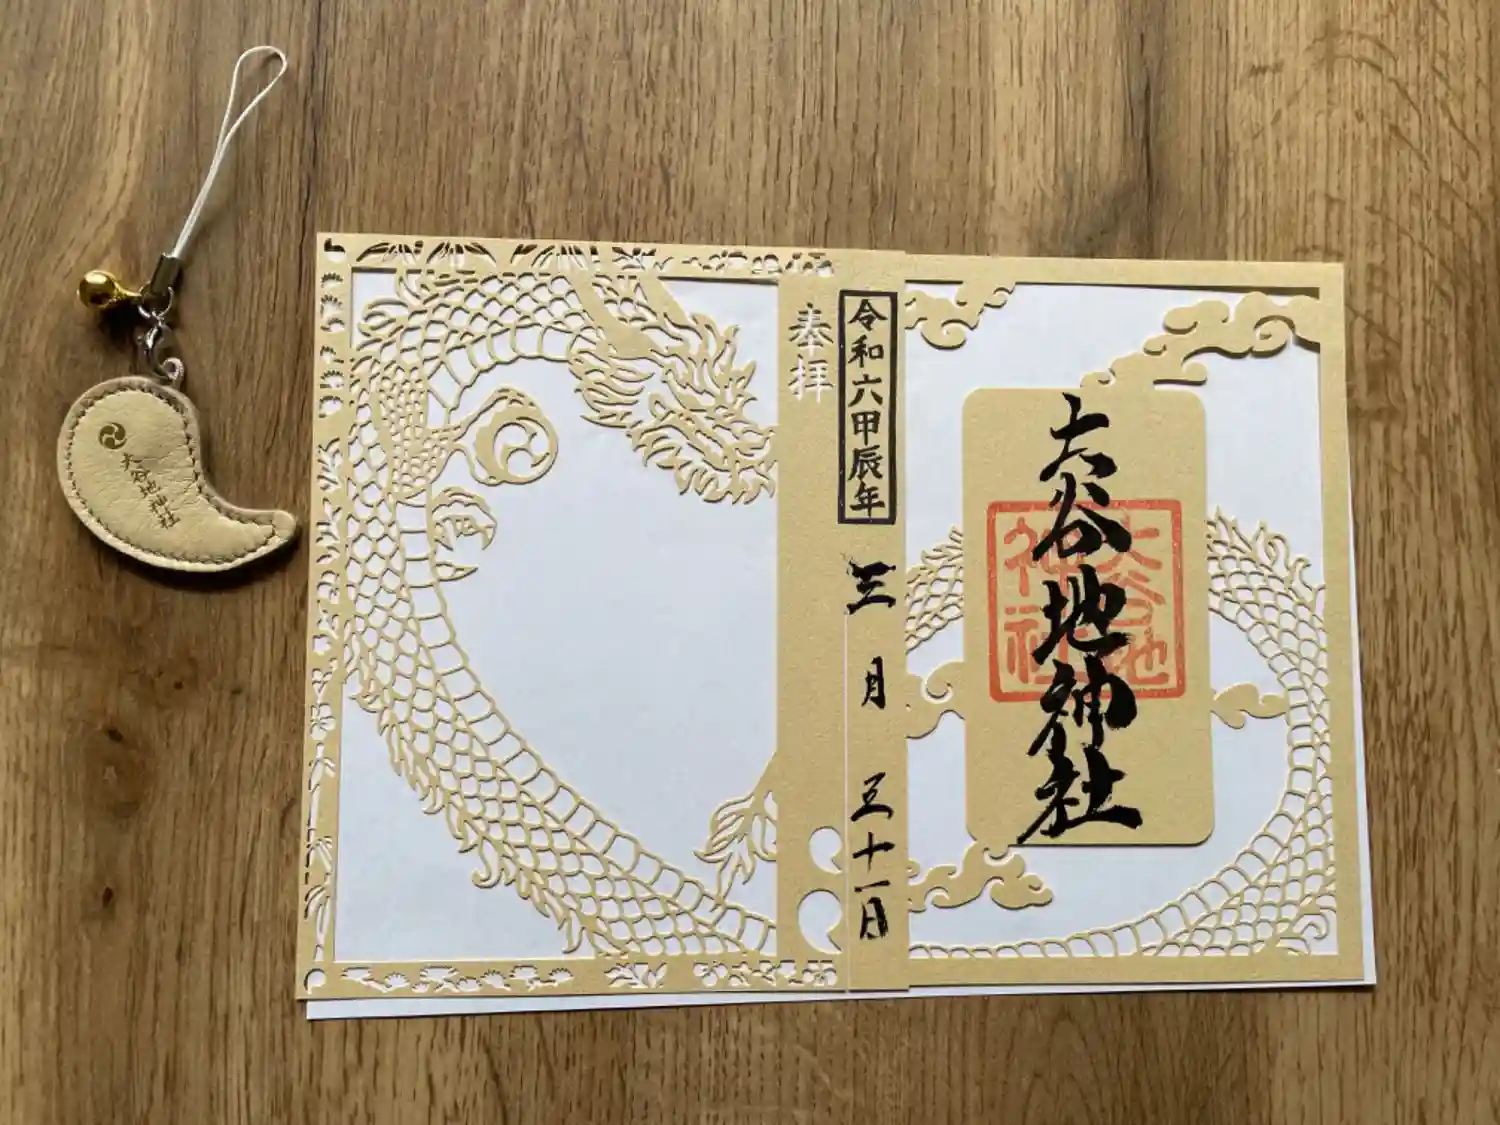 大谷地神社
奉拝
令和六甲辰年
三月三十一日
大谷地神社
大谷地
神社